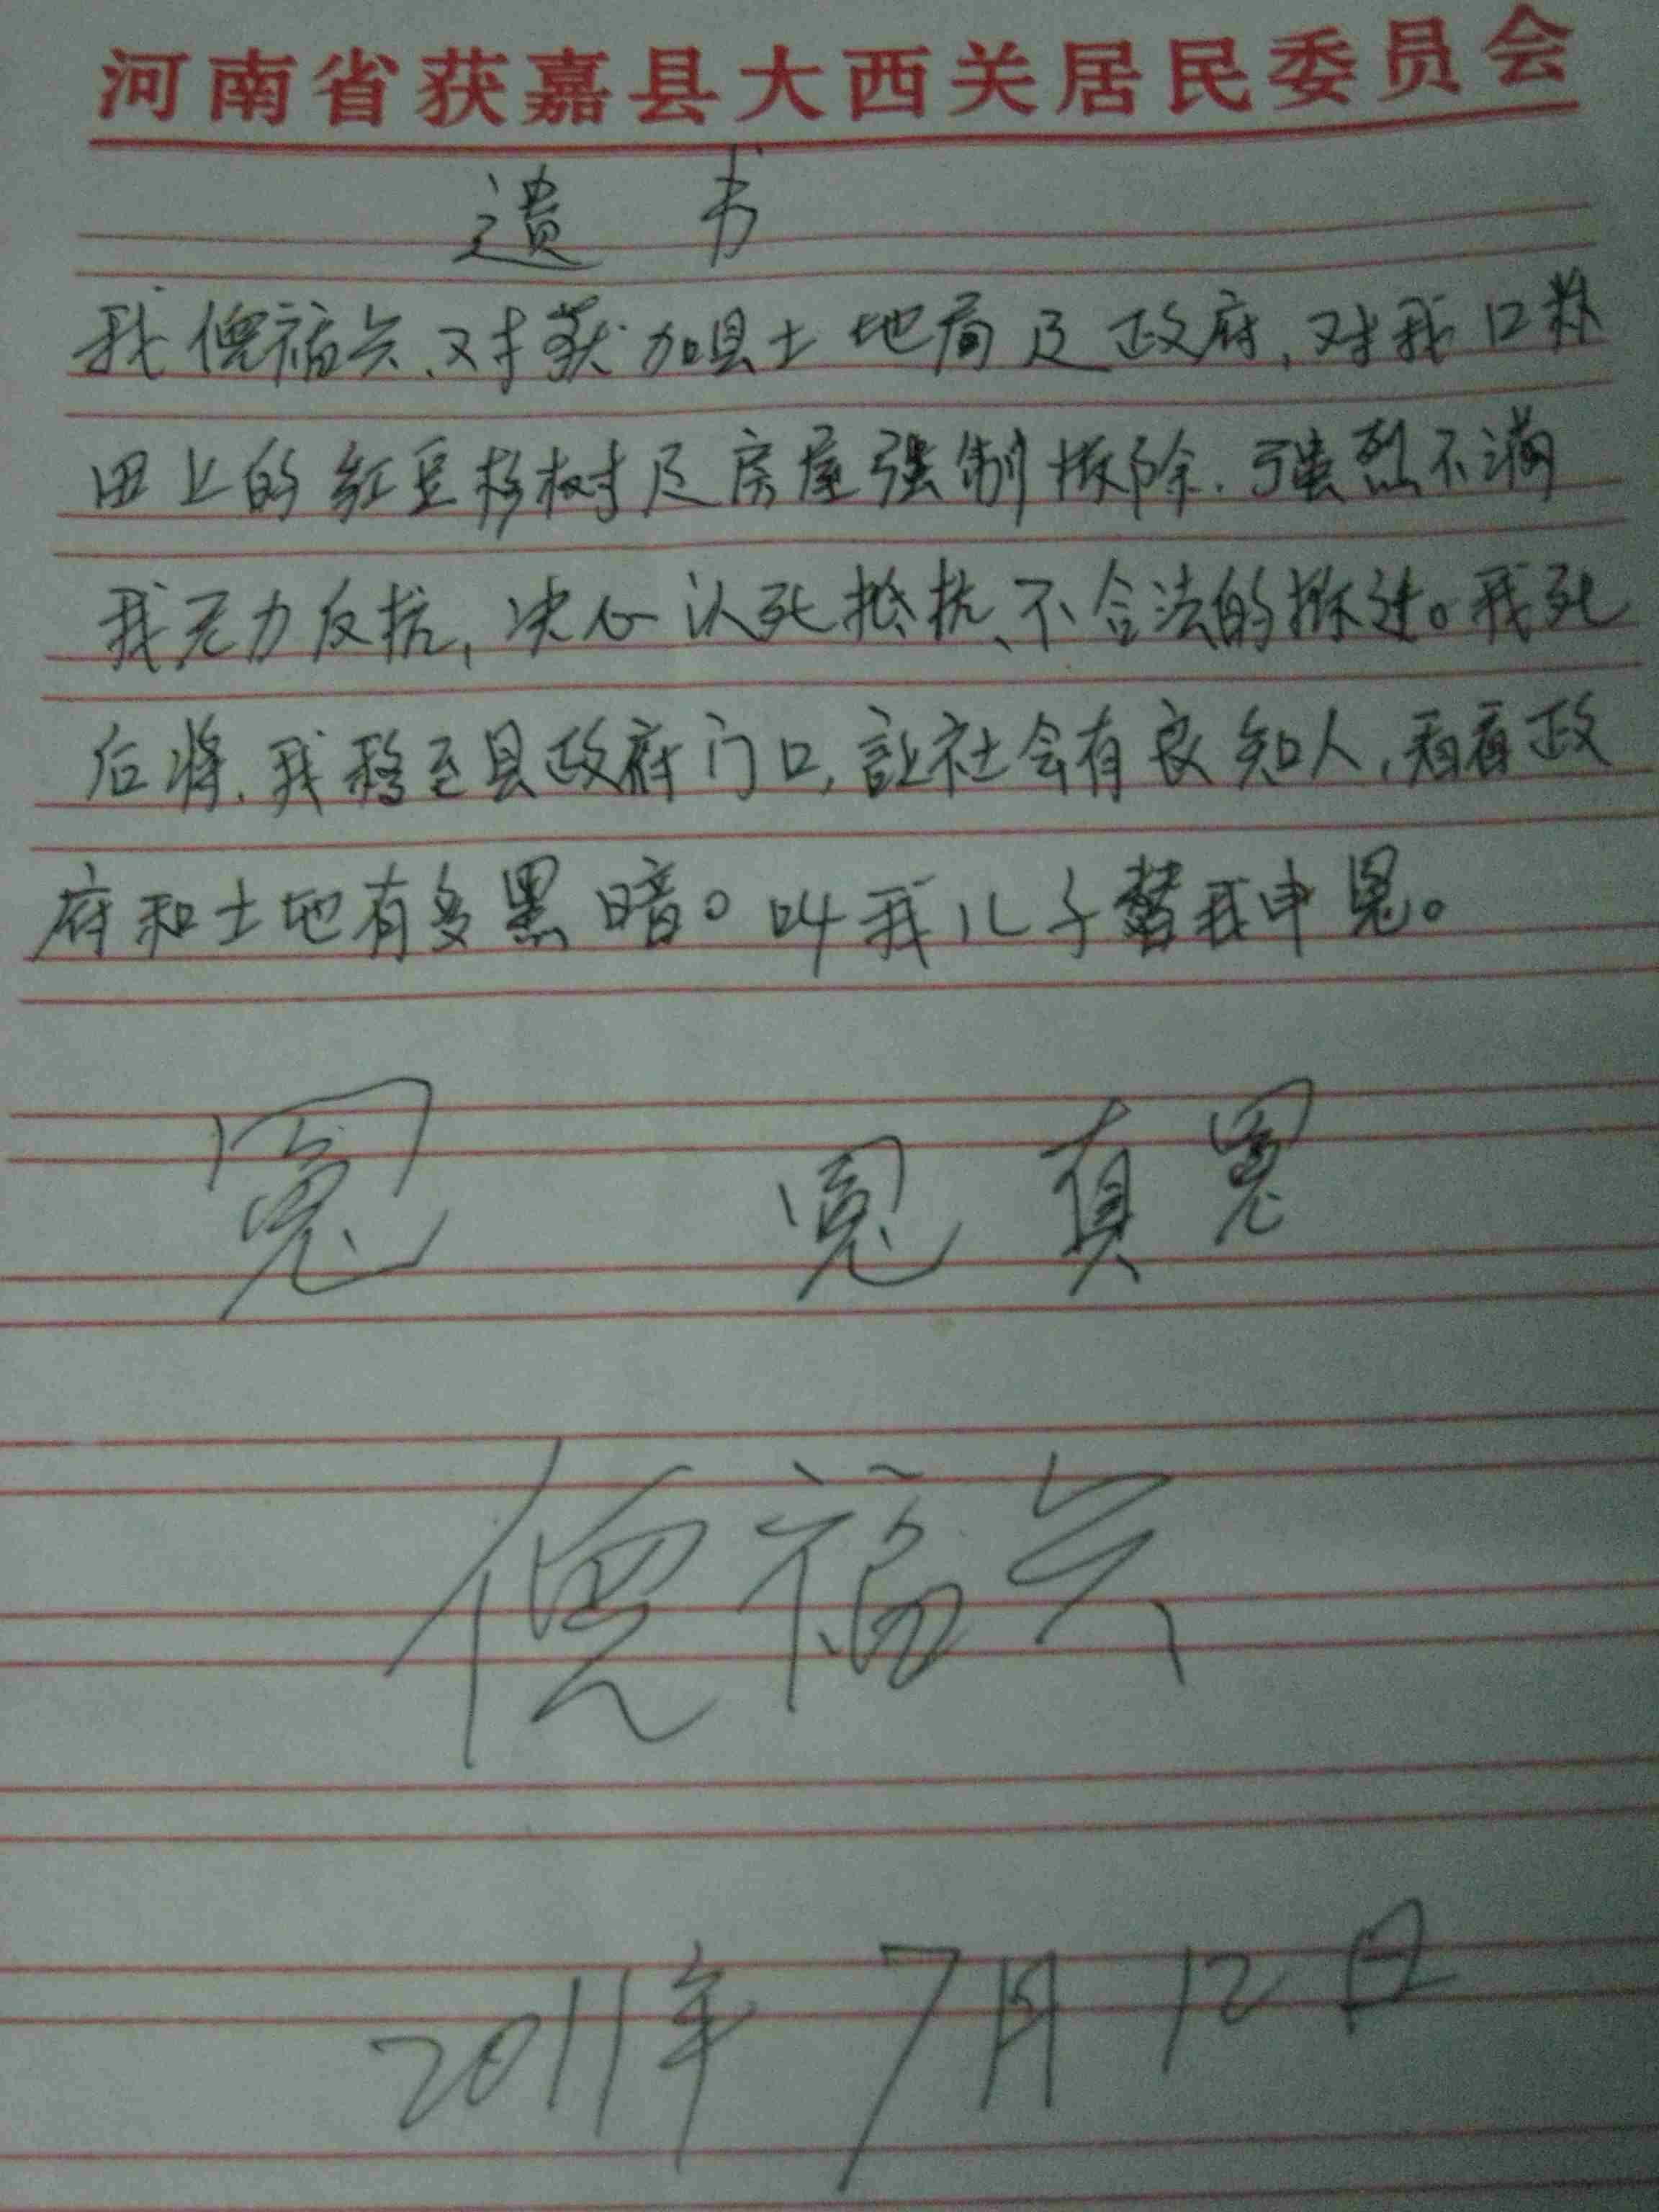 河南省获嘉县大西关居民委员会
遗书
我傻福兴、对获加县土地局及政府,对我口粮
田上的红豆杉树及房屋强制拆除.强烈不满
我无力反抗,决心以死抵抗、不合法的拆迁。我死
后将.我移至县政府门口,让社会有良知人,看看政
府和土地有多黑暗。叫我儿子替我申冤。
冤 冤真冤
福兴
2011年7月12日